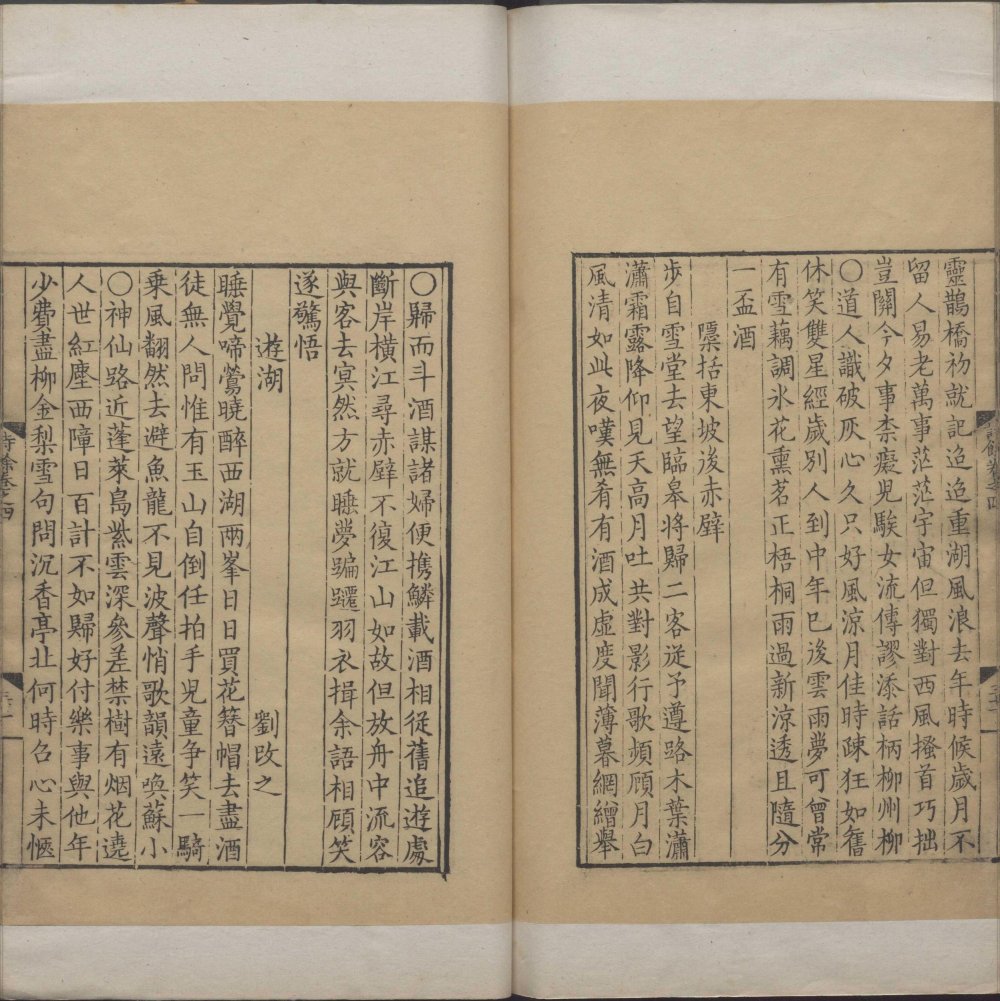 靈鵲橋初就記迢迢重湖風浪去年時候歲月不
留人易老萬事茫茫宇宙但獨對西風搔首巧拙
豈關今夕事柰癡兒騃女流傳謬添話柄柳州柳
〇道人識破灰心久只好風涼月佳時疎狂如舊
休笑雙星經歲別人到中年巳後雲雨夢可曾常
有雪藕調氷花熏茗正梧桐雨過新涼透且隨分
一盃酒
檃括東坡後赤壁
步自雪堂去望臨皋將歸二客從予遵路木葉瀟
瀟霜露降仰見天高月吐共對影行歌頻顧月白
風清如此夜嘆無肴有酒成虛度聞薄暮網繒舉
〇歸而斗酒謀諸婦便携鱗載酒相從舊追遊處
斷岸橫江尋赤壁不復江山如故但放舟中流容
與客去㝠然方就睡夢蹁躚羽衣揖余語相顧笑
遂驚悟
遊湖 劉改之
睡覺啼鶯曉醉西湖兩峯日日買花簪帽去盡酒
徒無人問惟有玉山自倒任拍手兒童争笑一騎
乗風翻然去避魚龍不見波聲悄歌韻遠喚蘇小
〇神仙路近蓬萊島紫雲深參差禁樹有烟花遶
人世紅塵西障日百計不如歸好付樂事與他年
少費盡柳金梨雪句問沉香亭北何時召心未愜